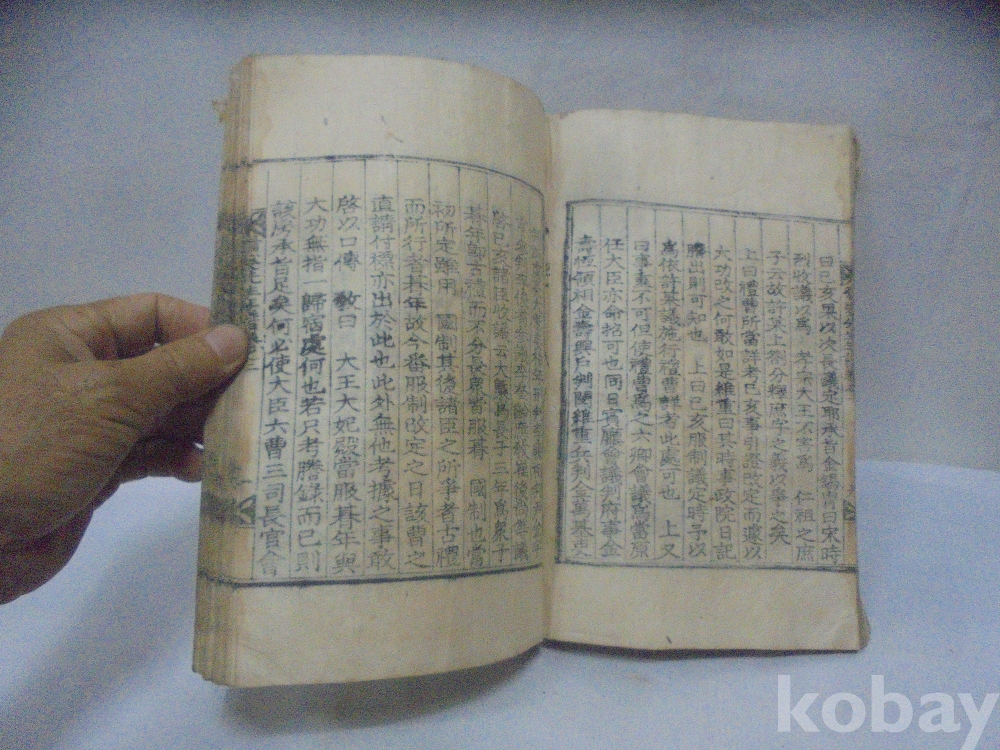 曰己亥果以次長議定耶承旨金錫胄曰宋時
烈收議以爲 孝宗大王不害爲 仁祖之庶
子云故許某上䟽分釋庶字之義以爭之矣
上曰禮曹所當詳考己亥事引證改定而遽以
大功改之何敢如是維重曰其時事政院日記
謄出則可知也 上曰己亥服制議定時予以
爲依許某議施行禮曹詳考此處可也 上又
曰事奉不可但使禮曹爲之六卿會議爲當原
任大臣亦命招可也同日賓廳會議判府事金
壽恒領相金壽興戶判閔維重兵判金萬基吏
朞年卽古禮而不分長衆皆服朞 國制也當
初所定雖用 國制其後諸臣之所爭者古禮
而所行者朞年故今番服制改定之日該曹之
直請付標亦出於此也此外無他考據之事敢
啓以口傳 敎曰 大王大妃殿當服朞年與
大功無指一歸宿處何也若只考謄錄而已則
該房承旨足矣何必使大臣六曹三司長官會
kobay